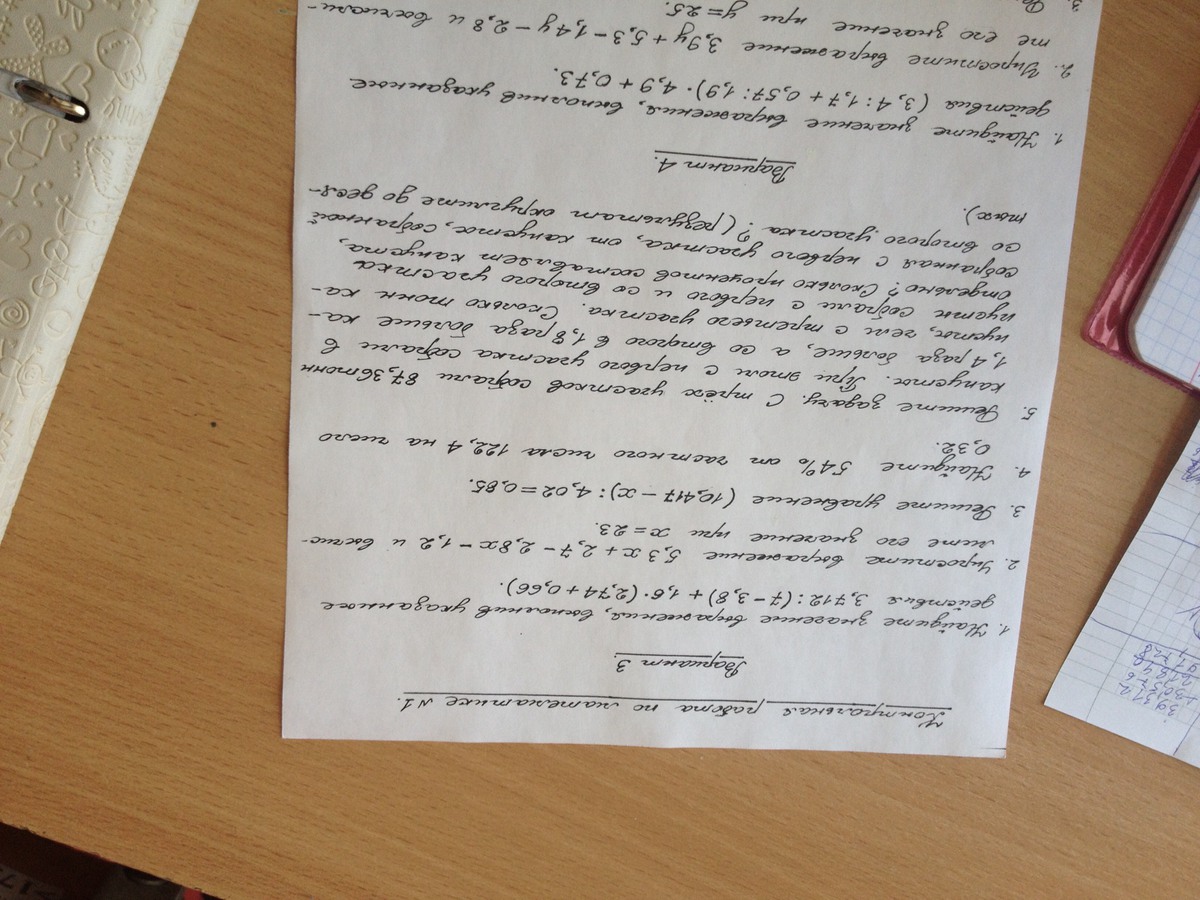 Контрольная работа по математике №1.
Вариант 3.
1. Найдите значение выражения, выполнив указанные
действия 3,712 : (7 − 3,8) + 1,6 · (2,74 + 0,66).
2. Упростите выражение 5,3x + 2,7 − 2,8x − 1,2 и вычис-
лите его значение при x = 23.
3. Решите уравнение (10,417 − x) : 4,02 = 0,85.
4. Найдите 54% от частного числа 122,4 на число
0,32.
5. Решите задачу. С трёх участков собрали 87,36 тонн
капусты. При этом с первого участка собрали в
1,4 раза больше, а со второго в 1,8 раза больше ка-
пусты, чем с третьего участка. Сколько тонн ка-
пусты собрали с первого и со второго участка
отдельно? Сколько процентов составляет капуста,
собранная с первого участка, от капусты, собранной
со второго участка? (результат округлите до деся-
тых).
Вариант 4.
1. Найдите значение выражения, выполнив указанные
действия (3,4 : 1,7 + 0,57 : 1,9) · 4,9 + 0,73.
2. Упростите выражение 3,9y + 5,3 − 1,4y − 2,8 и вычисли-
те его значение при y = 25.